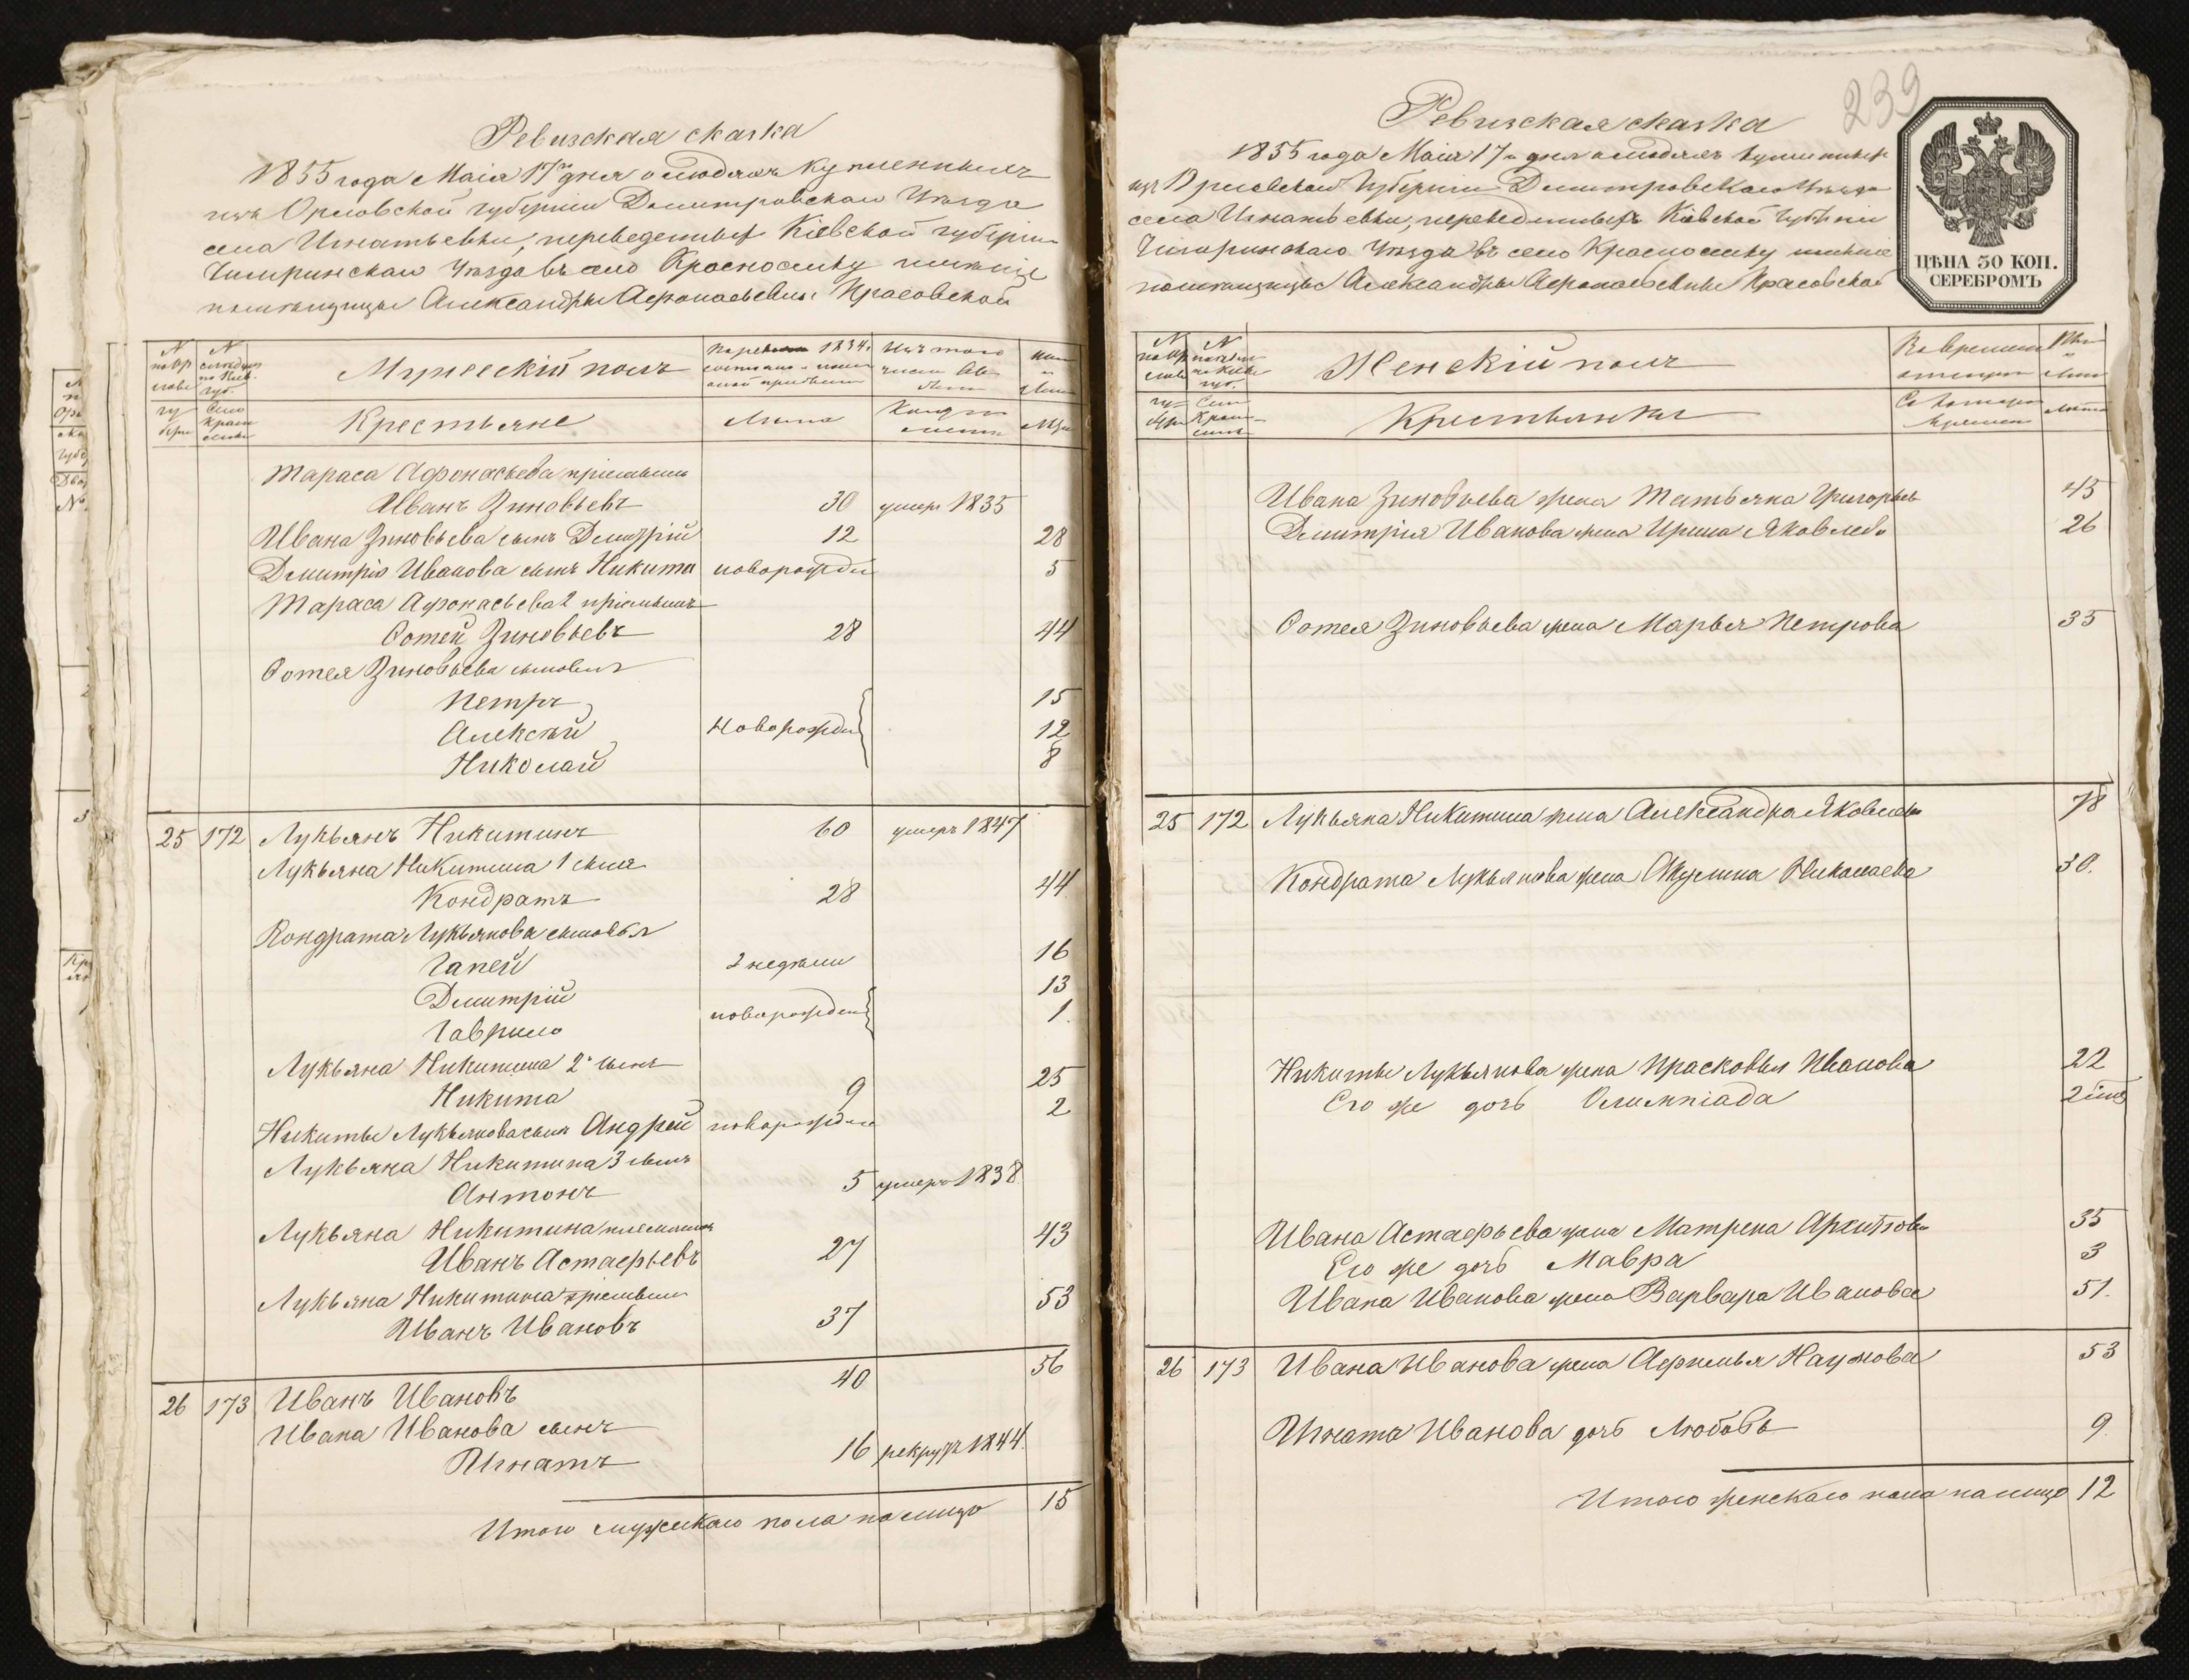 Ревизская сказка
1855 года Маія 17го дня о людяхъ купленныхъ
изъ Орловской губерніи Дмитровскаго Уѣзда
села Игнатьевки, переведенныхъ Кіевской губерніи
Чигиринскаго Уѣзда въ село Красноселку имѣніе
помѣщицы Александры Афонасьевны Красовской
N
по Ор
ловс
гу
берн
N
по Кіев.
губ.
Село
Мужескій полъ
1834.
Изъ того
числа
Крестьяне
Лѣта
Когда
Лѣта
Тараса Афонасьева пріемышъ
Иванъ Зиновьевъ 30 умеръ 1835
Ивана Зиновьева сынъ Дмитрій 12 28
Дмитрія Иванова сынъ Никита новорожден 5
Тараса Афонасьева 2 пріемышъ
Сотей Зиновьевъ 28 44
Сотея Зиновьева сыновья
Петръ 15
Алексѣй новорожден 12
Николай 8
25 172 Лукьянъ Никитинъ 60 умеръ 1847
Лукьяна Никитина 1 сынъ
Кондратъ 28 44
Кондрата Лукьянова сыновья
Гапей 2 недѣли 16
Дмитрій 13
Гаврило новорожден 1.
Лукьяна Никитина 2й сынъ
Никита 9 25
Никиты Лукьянова сынъ Андрей новорожден 2
Лукьяна Никитина 3 сынъ
Антонъ 5 умеръ 1838
Лукьяна Никитина племянникъ
Иванъ Астафьевъ 27 43
Лукьяна Никитина пріемышъ
Иванъ Ивановъ 37 53
26 173 Иванъ Ивановъ 40 56
Ивана Иванова сынъ
Игнатъ 16 рекрутъ 1844.
Итого мужескаго пола на лицо 15
239
Ревизская сказка
1855 года Маія 17го дня о людяхъ купленныхъ
изъ Орловской Губерніи Дмитровскаго Уѣзда
села Игнатьевки, переведенныхъ Кіевской Губерніи
Чигиринскаго Уѣзда въ село Красноселку имѣніе
помѣщицы Александры Афонасьевны Красовской
ЦѢНА 50 КОП.
СЕРЕБРОМЪ
N
по Ор
N
губ.
Женскій полъ
Во временной
отлучкѣ
Крестьянки
Съ котораго
времени
Лѣта
Ивана Зиновьева жена Татьяна Григорьев 45
Дмитрія Иванова жена Ирина Яковлева 26
Сотея Зиновьева жена Марья Петрова 35
25 172 Лукьяна Никитина жена Александра Яковлева 78
Кондрата Лукьянова жена Акулина Николаева 30.
Никиты Лукьянова жена Прасковья Иванова 22
Его же дочь Олимпіада
Ивана Астафьева жена Матрена Архипова 35
Его же дочь Мавра 3
Ивана Иванова жена Варвара Иванова 51.
26 173 Ивана Иванова жена Афимья Наумова 53
Игната Иванова дочь Любовь 9.
Итого женскаго пола на лицо 12